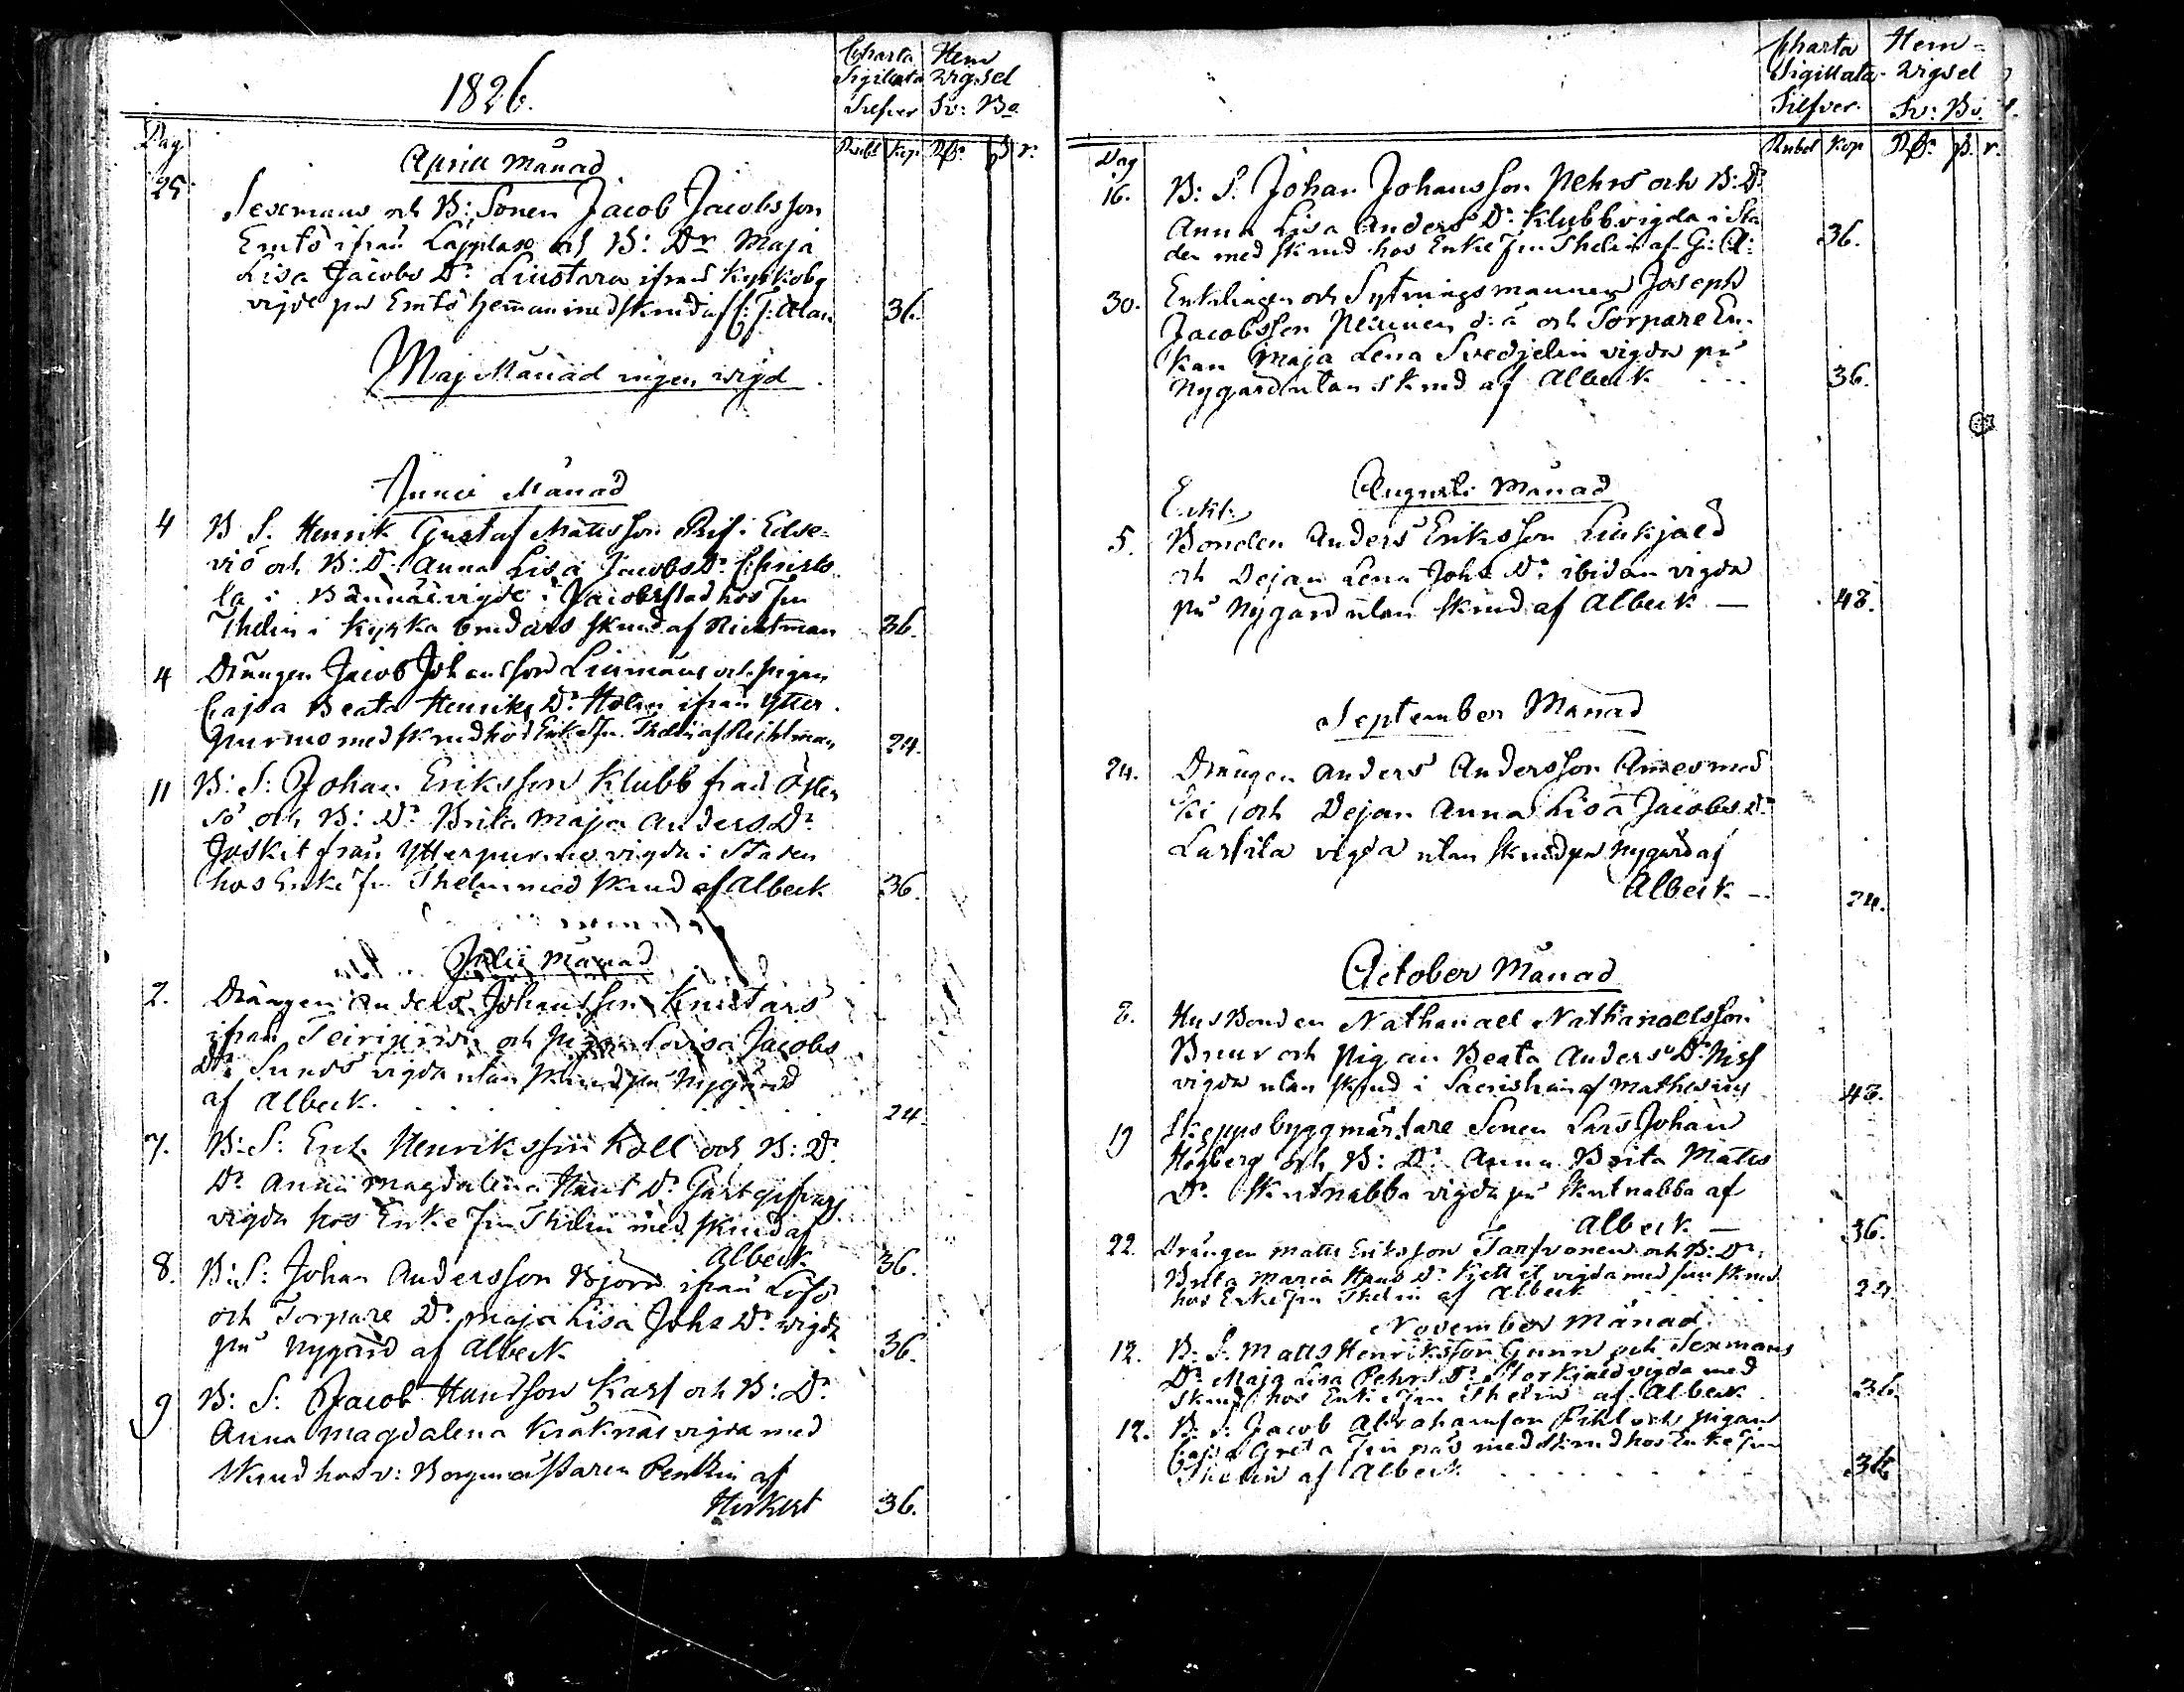 1826.
Charta Hem
Sigillata Wigsel
Silfver Sv: Bo
Dag
Rubl Kop Rdr ß r.
April Månad
25. Sexmans och B: Sonen Jacob Jacobsson
Emto ifrån Lappfars och B: Dr Maja
Lisa Jacobs Dr Liustara ifrån Kyrkoby
vigde på Emto Hemman med skrud af C: J: Alan 36.
Maj Månad ingen wigd.
Junii Månad
4 B S. Henrik Gustaf Mattsson Rif i Edse-
vio och B: D: Anna Lisa Jacobs Dr Christo
la i Bännäs vigde i Jacobstad hos Fru
Thelin i Kyrka brudars skrud af Nichtman 36.
4 Drängen Jacob Johansson Linmans och pigan
Cajsa Beata Henriks Dr Holm ifrån Ytter
Purmo med skrud hos Enke Fru Thelin af Reihlman 24.
11 B: S: Johan Eriksson Klubb från Öster
sö och B: Dr Brita Maja Anders Dr
Joskit från Ytterpurmo vigda i Staden
hos Enke Fru Thelin med skrud af Albeck 36.
Julii Månad
2. Drängen Anders Johansson Knutars
ifrån Teirijärvi och pigan Lovisa Jacobs
Dr Sunds vigda utan skrud på Nygård
af Albeck. 24.
7. B: S: Erik Henriksson Koll och B: Dr
Dr Anna Magdalena Hans Dr Gästgifvars
vigda hos Enke Fru Thelin med skrud af
Albeck 36.
8. B: S: Johan Andersson Björn ifrån Löfö
och Torpare Dr Maja Lisa Johs Dr wigda
på Nygård af Albeck 36.
9 B: S: Jacob Hansson Kass och B: Dr
Anna Magdalena Kråknäs vigda med
skrud hos v: Borgmästaren Penthin af
Hirkert 36.
Charta Hem-
Sigillata Wigsel
Silfver Sv: Bo.
Dag
Rubel Kop Rdr ß. r.
16. B: S. Johan Johansson Pehrs och B: Dr
Anna Lisa Anders Dr Klubb vigda i Sta
den med skrud hos Enke Fru Thelin af G: A: 36.
30. Enklingen och Sytningsmannen Joseph
Jacobsson d: ä och Torpare En-
kan Maja Lena Svedjelin vigda på
Nygård utan skrud af Albeck 36.
Augusti Månad
Enkl.
5. Bonden Anders Eriksson Linkjaed
och Dejan Lena Johs Dr ibidem vigda
på Nygård utan skrud af Albeck — 48.
September Månad
24. Drängen Anders Andersson
ki och Dejan Anna Lisa Jacobs Dr
Lassila vigda utan skrud på Nygård af
Albeck — 24.
October Månad
8. Husbonden Nathanael Nathanaelsson
Bruur och Pigan Beata Anders Dr Niss
vigda utan skrud i af Mathesius 48.
19 Skeppsbyggmästare Sonen Lars Johan
Högberg och B: Dr Anna Brita Matts
Dr Skutnabba vigda på Skutnabba af
Albeck — 36.
22. Drängen Matts Eriksson Tarfvonen och B: Dr
Brita Maria Hans Dr Kettel vigda med sin skrud
hos Enke Fru Thelin af Albeck 24.
November Månad.
12. B: S. Matts Henriksson Gunn och Sexmans
Dr Maja Lisa Pehrs Dr Storkjaed vigda med
skrud hos Enke Fru Thelin af Albeck 36.
12. B: S. Jacob Abrahamson Fihl och pigan
Cajsa Greta med skrud hos Enke Fru
Thelin af Albeck 36